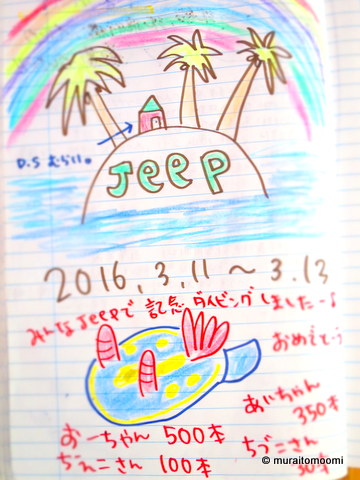 D.S むらい。
Jeep
2016.3.11～3.13
みんなJeepで 記念ダイビングしました～♪
おめでとう
おーちゃん 500本
あいちゃん 350本
100本
© muraitomoomi